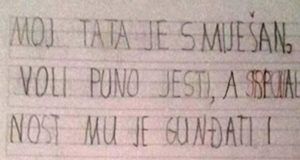 MOJ TATA JE SMIJEŠAN,
VOLI PUNO JESTI, A SPECIJAL
NOST MU JE GUNĐATI I